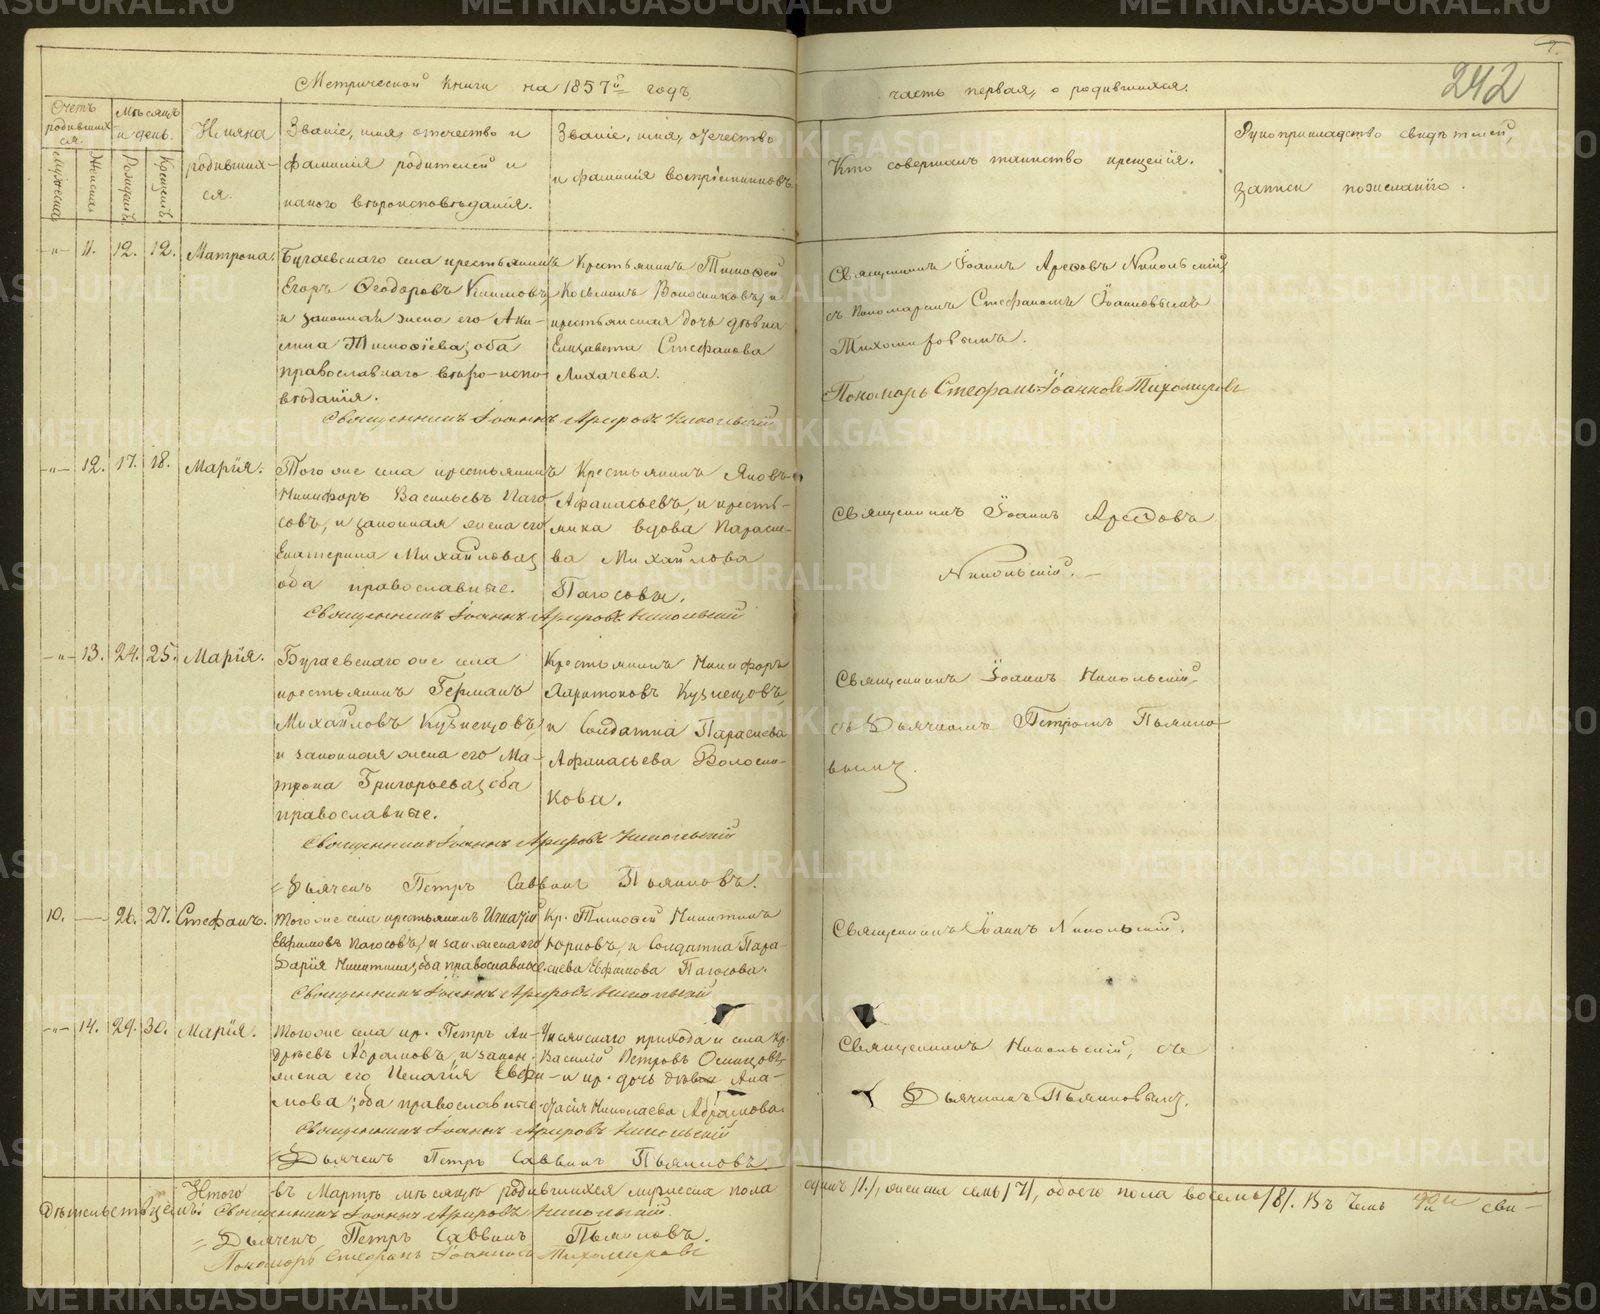 242
Метрической книги на 1857й годъ,
часть первая, о родившихся.
Счетъ родившихся.
Мѣсяцъ и день.
Имяна родившихся.
Званіе, имя, отечество и фамилія родителей и какого вѣроисповѣданія.
Званіе, имя, отечество и фамилія воспріемниковъ.
Кто совершалъ таинство крещенія.
Рукоприкладство свидѣтелей записи по желанію.
Мужеска
Женска
Рожденія
Крещенія
-"- 11. 12. 12. Матрона.
Бугаевскаго села крестьянинъ
Егоръ Ѳеодоровъ Климовъ,
и законная жена его Аки-
лина Тимоѳіева; оба
православнаго вѣро-испо-
вѣданія.
Крестьянинъ Тимоѳей
Косьминъ Волосниковъ, и
крестьянская дочь дѣвка
Елизавета Стефанова
Лихачева.
Священникъ Іоаннъ Арефовъ Никольскій
съ пономаремъ Стефаномъ Іоанновымъ
Тихомировымъ.
Пономарь Стефанъ Іоанновъ Тихомировъ
Священникъ Іоаннъ Арефовъ Никольскій
-"- 12. 17. 18. Марія.
Того же села крестьянинъ
Никифоръ Васильевъ Паго
совъ, и законная жена его
Екатерина Михайлова;
оба православные.
Крестьянинъ Яковъ
Афанасьевъ, и кресть-
янка вдова Параске-
ва Михайлова
Пагосовы.
Священникъ Іоаннъ Арефовъ
Никольскій.
Священникъ Іоаннъ Арефовъ Никольскій
-"- 13. 24. 25. Марія.
Бугаевскаго же села
крестьянинъ Германъ
Михайловъ Кузнецовъ
и законная жена его Ма-
трона Григорьева; оба
православные.
Крестьянинъ Никифоръ
Харитоновъ Кузнецовъ,
и Солдатка Параскева
Афанасьева Волосни-
кова.
Священникъ Іоаннъ Никольскій,
съ Дьячкомъ Петромъ Пьянко-
вымъ.
Священникъ Іоаннъ Арефовъ Никольскій
Дьячекъ Петръ Саввинъ Пьянковъ.
10. — 26. 27. Стефанъ.
Того же села крестьянинъ Игнатій
Евфимовъ Пагосовъ, и зак. жена его
Дарія Никитина; оба православные.
Кр. Тимоѳей Никитинъ
Юрковъ, и Солдатка Пара-
скева Евфимова Пагосова.
Священникъ Іоаннъ Никольскій.
Священникъ Іоаннъ Арефовъ Никольскій
-"- 14. 29. 30. Марія.
Того же села кр. Петръ Ан-
дреевъ Абрамовъ, и закон.
жена его Пелагія Евфи-
мова; оба православные.
прихода и села кр.
Василій Петровъ Осинцовъ,
и кр. дочь дѣвка Ана-
стасія Николаева Абрамова.
Священникъ Никольскій, съ
Дьячкомъ Пьянковымъ.
Священникъ Іоаннъ Арефовъ Никольскій
Дьячекъ Петръ Саввинъ Пьянковъ.
Итого въ Мартѣ мѣсяцѣ родившихся мужеска пола одинъ /1/, женска семь /7/, обоего пола восемь /8/. Въ чемъ сви-
дѣтельствуемъ: Священникъ Іоаннъ Арефовъ Никольскій.
Дьячекъ Петръ Саввинъ Пьянковъ.
Пономарь Стефанъ Іоанновъ Тихомировъ
METRIKI.GASO-URAL.RU